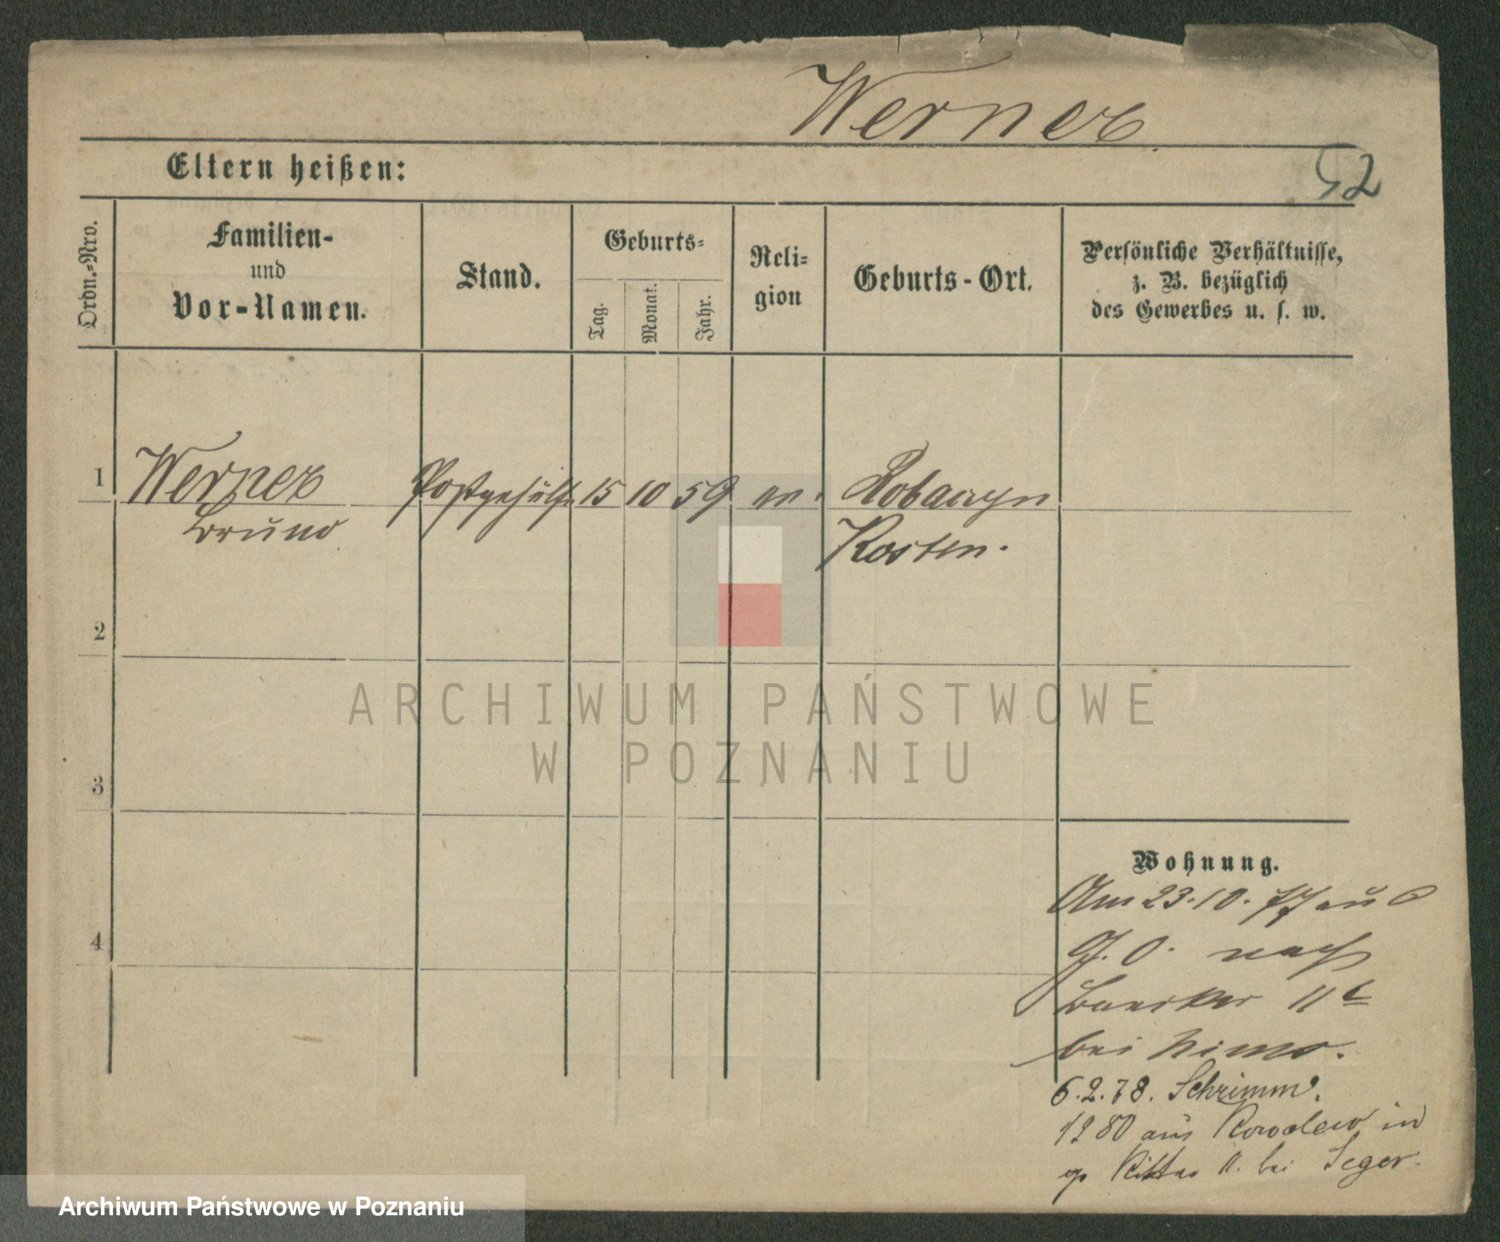 Werner
52
Eltern heißen:
Ordn.-Nro.
Familien-
und
Vor-Namen.
Stand.
Geburts-
Tag.
Monat.
Jahr.
Reli-
gion
Geburts-Ort.
Persönliche Verhältnisse,
z. B. bezüglich
des Gewerbes u. s. w.
1
Werner
Bruno
Postgehülfe
15
10
59
Kosten.
2
3
4
Wohnung.
Am 23.10.77 aus
G. O. nach
Baecker 11
bei
6.2.78. Schrimm.
1280 aus in
Ritter 11. bei Seger.
ARCHIWUM PAŃSTWOWE
W POZNANIU
Archiwum Państwowe w Poznaniu